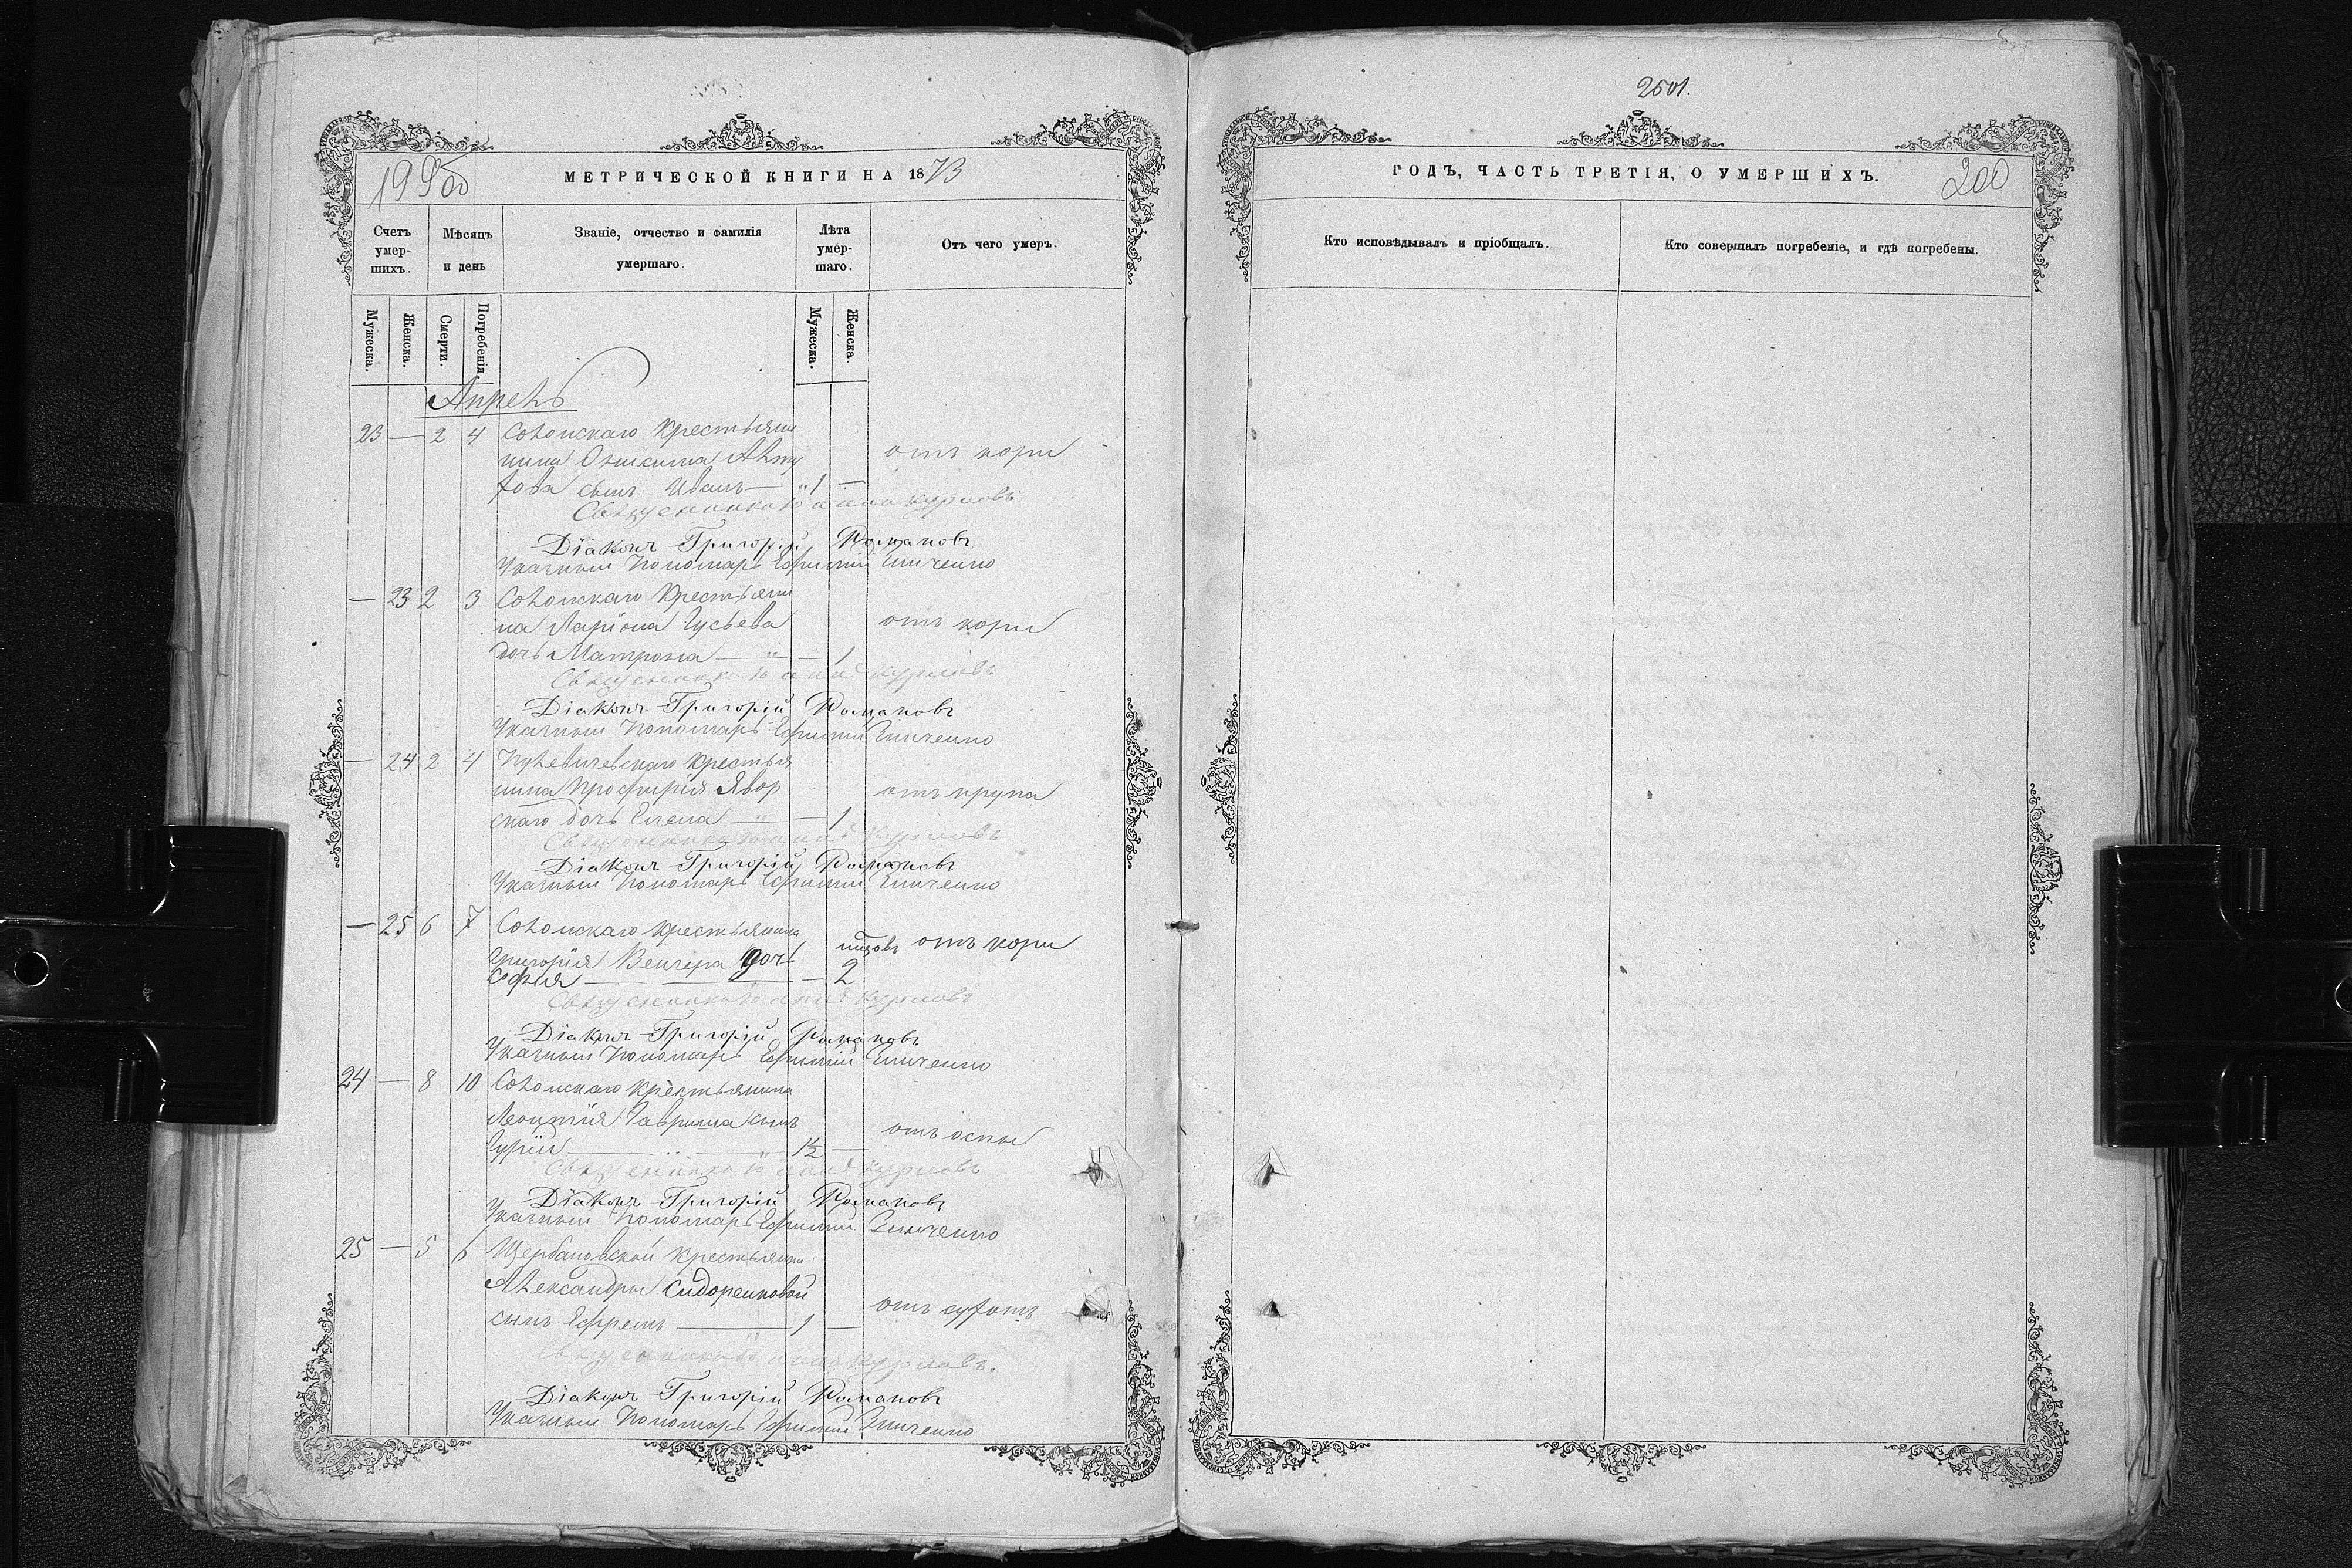 2601.
200
МЕТРИЧЕСКОЙ КНИГИ НА 1873
ГОДЪ, ЧАСТЬ ТРЕТІЯ, О УМЕРШИХЪ.
Счетъ умер-шихъ.
Мѣсяцъ и день
Званіе, отчество и фамилія умершаго.
Лѣта умер-шаго.
Отъ чего умеръ.
Кто исповѣдывалъ и пріобщалъ.
Кто совершалъ погребеніе, и гдѣ погребены.
Мужеска.
Женска.
Смерти.
Погребенія.
Мужеска.
Женска.
Апрель
23 — 2 4 Соломскаго Крестьяни
нина
отъ кори
сынъ Иванъ — " 1 —
Священникъ Курловъ
Діаконъ Григорій Романовъ
Указный Пономарь Ефимій Зинченко
— 23 2 3 Соломскаго Крестьяни
на Ларіона Гусьева отъ кори
дочь Матрона — " — 1
Священникъ Курловъ
Діаконъ Григорій Романовъ
Указный Пономарь Ефимій Зинченко
— 24 2 4 Крестья
нина Явор отъ крупа
скаго дочь Елена — " — 1
Священникъ Курловъ
Діаконъ Григорій Романовъ
Указный Пономарь Ефимій Зинченко
— 25 6 7 Соломскаго Крестьянина
Григорія Венгера дочь отъ кори
Софія — — 2
Священникъ Курловъ
Діаконъ Григорій Романовъ
Указный Пономарь Ефимій Зинченко
24 — 8 10 Соломскаго Крестьянина
Леонтія Гавриша сынъ отъ оспы
Гурій — " — " 1½ —
Священникъ Курловъ
Діаконъ Григорій Романовъ
Указный Пономарь Ефимій Зинченко
25 — 5 6 Щербановской крестьянки
Александры Сидоренковой
сынъ Ефремъ — " 1 — отъ сухотъ
Священникъ Курловъ.
Діаконъ Григорій Романовъ
Указный Пономарь Ефимій Зинченко